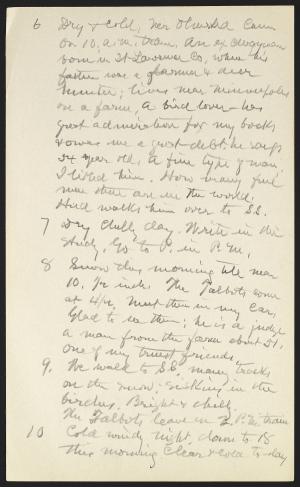 6 Dry & cold, Mr Olmsted Came
on 10, a.m. train. An ex clergyman
born in St Lawrence Co. when his
father was a farmer & deer
hunter; lives near Minneapolis
on a farm, a bird lover - has
great admiration for my books
& owes me a great debt, he says
34 year old, a fine type of man,
I liked him. How many fine
men there are in the world.
Hud walks him over to S.S.
7 Dry chilly day. Write in the
Study. Go to P. in P.M.
8 Snow this morning till near
10, 1/2 inch. The Talbots come
at 4 1/2, meet them in my Car,
Glad to see them; he is a judge
a man from the farm about 51.
one of my truest friends.
9. We walk to S.S. many tracks
on the snow. in the
birches. Bright & chilly.
The Talbots leave on P.M. train
10 Cold windy night, down to 18
this morning Clear & cold to-day